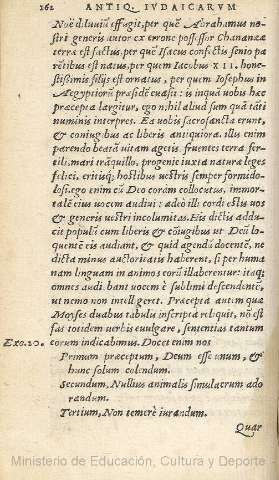 262 ANTIQ. IVDAICARVM
Noë diluviũ effugit, per quẽ Abrahamus no-
stri generis autor ex errone possessor Chananææ
terræ est factus, per quẽ Isacus confectis senio pa
rẽtibus est natus, per quem Iacobus XII. hone-
stissimis filijs est ornatus, per quem Iosephus in
Aegyptiorũ præsidẽ euasit: is inquã uobis hæc
præcepta largitur, ego nihil aliud sum quã tãti
numinis interpres. Ea uobis sacrosancta erunt,
& coniugibus ac liberis antiquiora. illis enim
parendo beatã uitam agetis. fruentes terra fer-
tili, mari trãquillo, progenie iuxta naturæ leges
felici, eritisq; hostibus uestris semper formido-
losi. ego enim cũ Deo coràm collocutus, immor-
talẽ eius uocem audiui: adeò illi cordi estis uos
& generis uestri incolumitas. His dictis addu-
cit populũ cum liberis & cõiugibus ut Deũ lo-
quentẽ eis audiant, & quid agendũ docentẽ, ne
dicta minus auctoritatis haberent, si per huma
nam linguam in animos eorũ illaberentur: itaq;
omnes audiebant uocem è sublimi descendentẽ,
ut nemo non intelligeret. Præcepta autem quæ
Moyses duabus tabulis inscripta reliquit, nõ est
fas totidem uerbis euulgare, sententias tantùm
Exo.20. eorum indicabimus. Docet enim nos
Primum præceptum, Deum esse unum, &
hunc solum colendum.
Secundum, Nullius animalis simulacrum ado
randum.
Tertium, Non temerè iurandum.
Quar
Ministerio de Educación, Cultura y Deporte